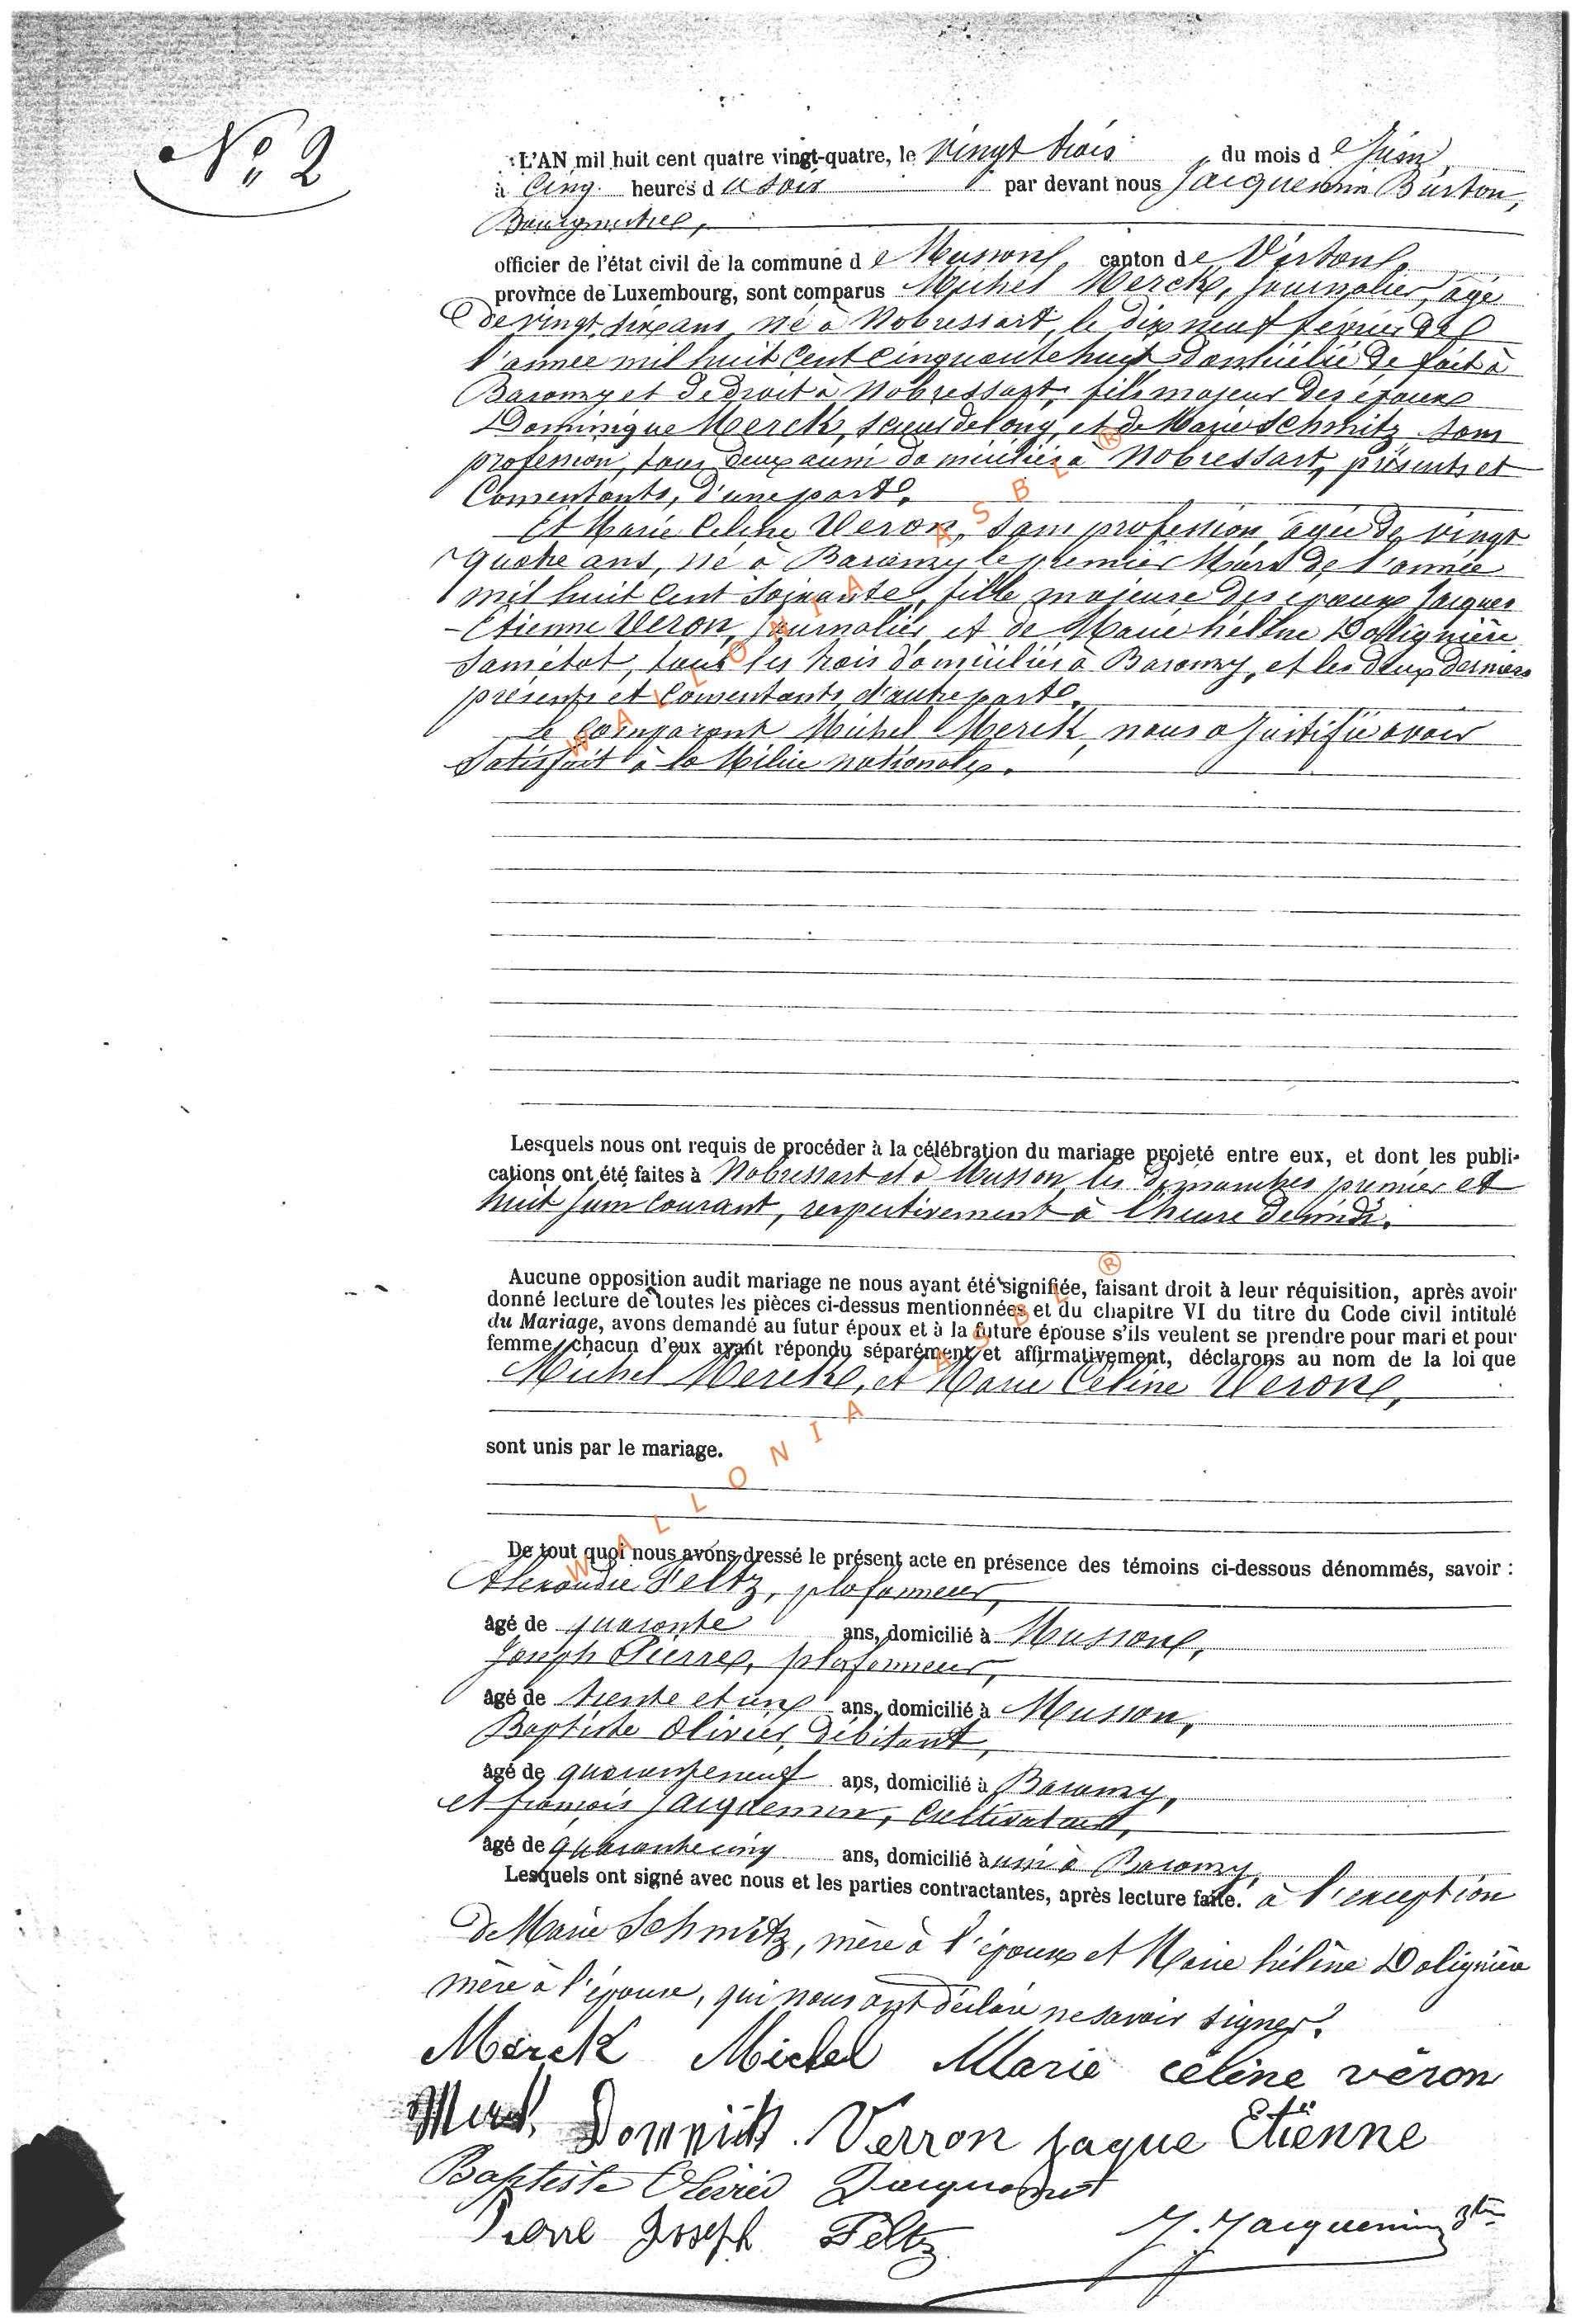 N° 2
L'AN mil huit cent quatre vingt-quatre, le vingt trois du mois de Juin
à Cinq heures du soir par devant nous Jacquemin Burton,
Bourgmestre,
officier de l'état civil de la commune de Musson, canton de Virton,
province de Luxembourg, sont comparus Michel Merck, journalier, âgé
de vingt six ans, né à Nobressart, le dix neuf février de
l'année mil huit cent cinquante huit, domicilié de fait à
Baranzy et de droit à Nobressart, fils majeur des époux
Dominique Merck, scieur de long, et de Marie Schmitz, sans
profession, tous deux aussi domiciliés à Nobressart, présents et
Consentants, d'une part.
Et Marie Celine Veron, sans profession, agée de vingt
quatre ans, né à Baranzy le premier Mars de l'année
mil huit cent soixante, fille majeure des epoux Jacques
Etienne Veron, journalier, et de Marie hélène Dolignière
sans état, tous les trois domiciliés à Baranzy, et les deux derniers
présents et consentants, d'autre part.
Le comparant Michel Merck, nous a justifié avoir
Satisfait à la Milice nationale.
Lesquels nous ont requis de procéder à la célébration du mariage projeté entre eux, et dont les publi-
cations ont été faites à Nobressart et à Musson, les dimanches premier et
huit juin courant, respectivement à l'heure de midi.
Aucune opposition audit mariage ne nous ayant été signifiée, faisant droit à leur réquisition, après avoir
donné lecture de toutes les pièces ci-dessus mentionnées et du chapitre VI du titre du Code civil intitulé
du Mariage, avons demandé au futur époux et à la future épouse s'ils veulent se prendre pour mari et pour
femme, chacun d'eux ayant répondu séparément et affirmativement, déclarons au nom de la loi que
Michel Merck, et Marie Céline Veron,
sont unis par le mariage.
De tout quoi nous avons dressé le présent acte en présence des témoins ci-dessous dénommés, savoir :
Alexandre Feltz, plafonneur,
âgé de quarante ans, domicilié à Musson,
Joseph Pierre, plafonneur,
âgé de trente et un ans, domicilié à Musson,
Baptiste Olivier, Débitant,
âgé de quarante neuf ans, domicilié à Baranzy,
et françois Jacquemin, Cultivateur,
âgé de quarante cinq ans, domicilié aussi à Baranzy,
Lesquels ont signé avec nous et les parties contractantes, après lecture faite. à l'exception
de Marie Schmitz, mère à l'époux et Marie hélène Dolignière
mère à l'épouse, qui nous ont déclaré ne savoir signer.
Merck Michel Marie céline véron
Merck Dominick Verron jaque Etienne
Baptiste Olivier
Pierre Joseph Feltz J. Jacquemin Btn
WALLONIA ASBL ®
WALLONIA ASBL ®